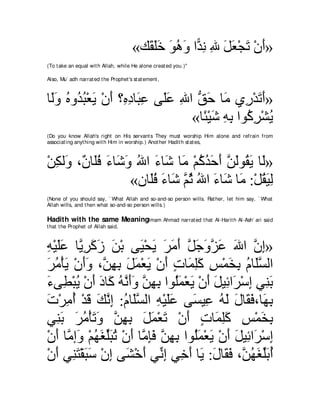 «أَنْ تَجْعَلَ لِلَّهِ نِدًّا وَهُوَ خَلَقَكَ»
(To take an equal with Allah, while He alone created you.)"
Also, Mu`adh narrated the Prophet's statement,
«أَتَدْرِي مَا حَقُّ اللهِ عَلَى عِبَادِهِ؟ أَنْ يَعْبُدُوهُ وَلَا
يُشْرِكُوا بِهِ شَيْئًا»
(Do you know Allah's right on His servants They must worship Him alone and refrain from
associating anything with Him in worship.) Another Hadith states,
«لَا يَقُولَنَّ أَحَدُكُمْ مَا شَاءَ اللهُ وَشَاءَ فُلَانٌ، وَلكِنْ
لِيَقُلْ: مَا شَاءَ اللهُ ثُمَّ شَاءَ فُلَان»
(None of you should say, `What Allah and so-and-so person wills. Rather, let him say, `What
Allah wills, and then what so-and-so person wills.)
Hadith with the same Meaning Imam Ahmad narrated that Al-Harith Al-Ash`ari said
that the Prophet of Allah said,
«إِنَّ اللهَ عَزَّوَجَلَّ أَمَرَ يَحْيَى بْنَ زَكَرِيَّا عَلَيْهِ
السَّلَامُ بِخَمْسِ كَلِمَاتٍ أَنْ يَعْمَلَ بِهِنَّ، وَأَنْ يَأْمُرَ
بَنِي إِسْرَائِيلَ أَنْ يَعْمَلُوا بِهِنَّ وَأَنَّهُ كَادَ أَنْ يُبْطِىءَ
بِهَا، فَقَالَ لَهُ عِيسَى عَلَيْهِ السَّلَامُ: إِنَّكَ قَدْ أُمِرْتَ
بِخَمْسِ كَلِمَاتٍ أَنْ تَعْمَلَ بِهِنَّ وَتَأْمُرَ بَنِي
إِسْرَائِيلَ أَنْ يَعْمَلُوا بِهِنَّ فَإِمَّا أَنْ تُبَلِّغَهُمْ وَإِمَّا أَنْ
أُبَلِّغَهُنَّ، فَقَالَ: يَا أَخِي إِنِّي أَخْشَى إِنْ سَبَقْتَنِي أَنْ